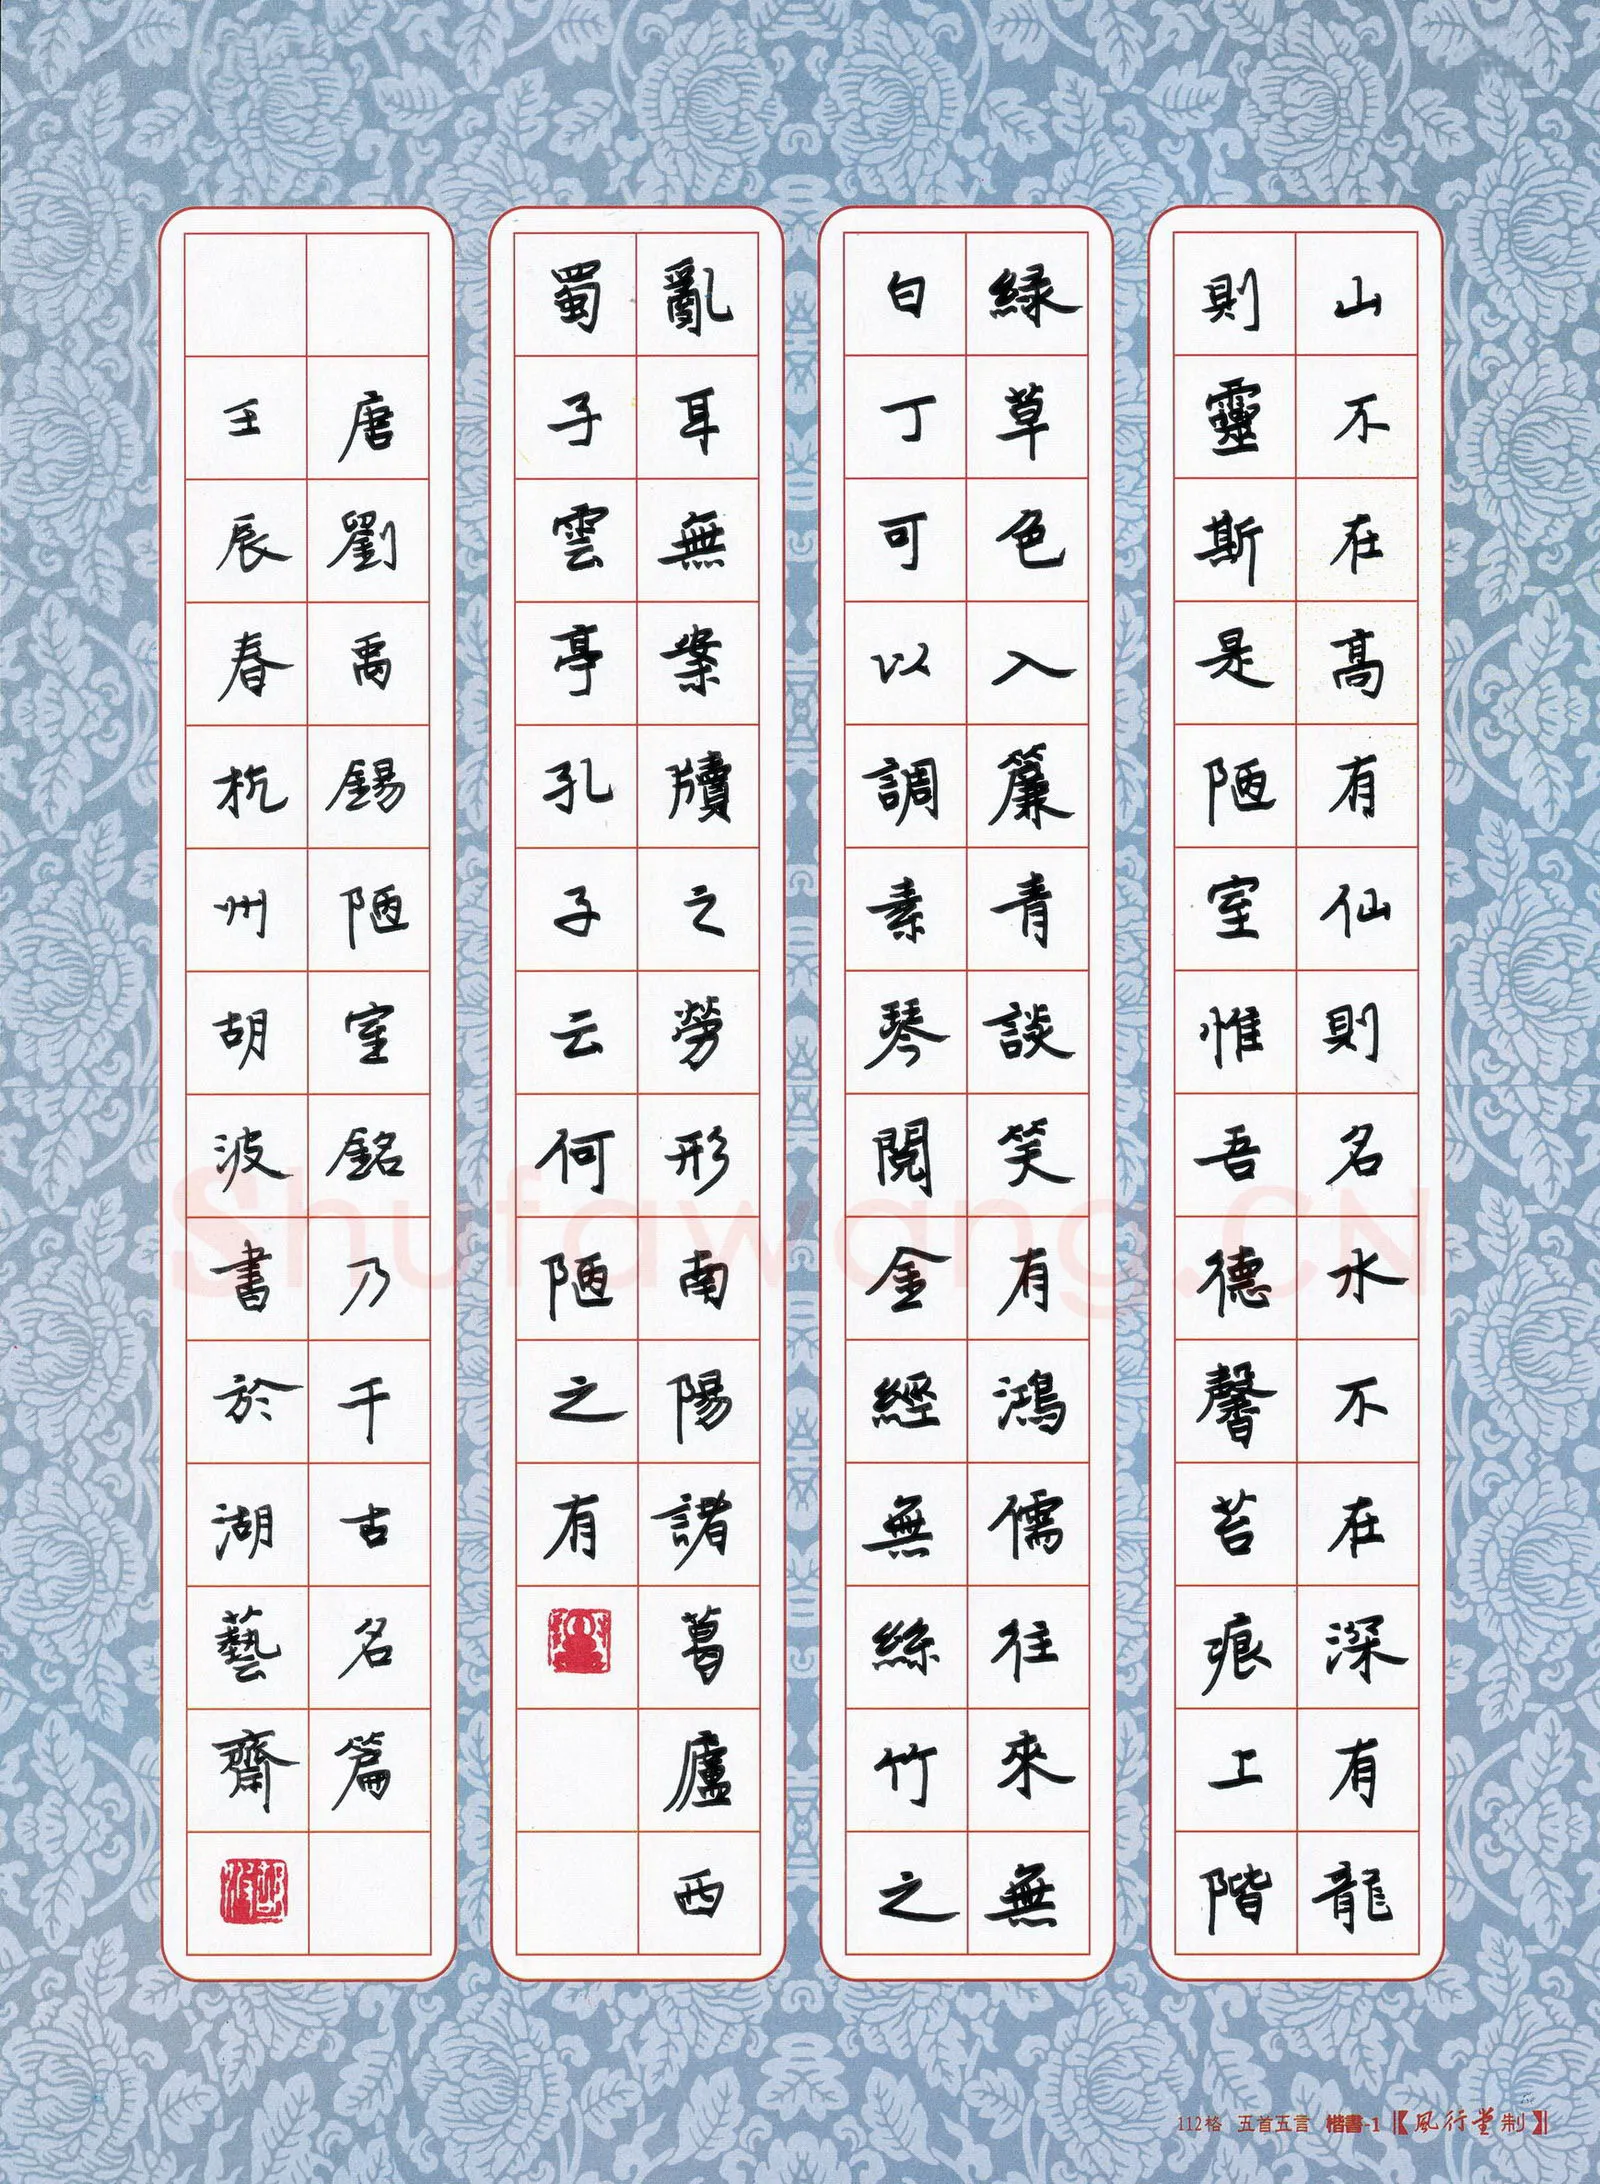 山不在高有仙則名水不在深有龍
則靈斯是陋室惟吾德馨苔痕上階
緑草色入簾青談笑有鴻儒往來無
白丁可以調素琴閱金經無絲竹之
亂耳無案牘之勞形南陽諸葛廬西
蜀子雲亭孔子云何陋之有
唐劉禹錫陋室銘乃千古名篇
壬辰春杭州胡波書於湖藝齋
Shufawang.CN
112格 五首五言 楷書-1【風行堂制】